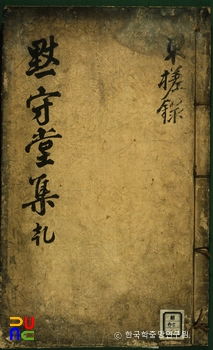 東槎錄
黙守堂集 礼
ⓒ 한국학중앙연구원